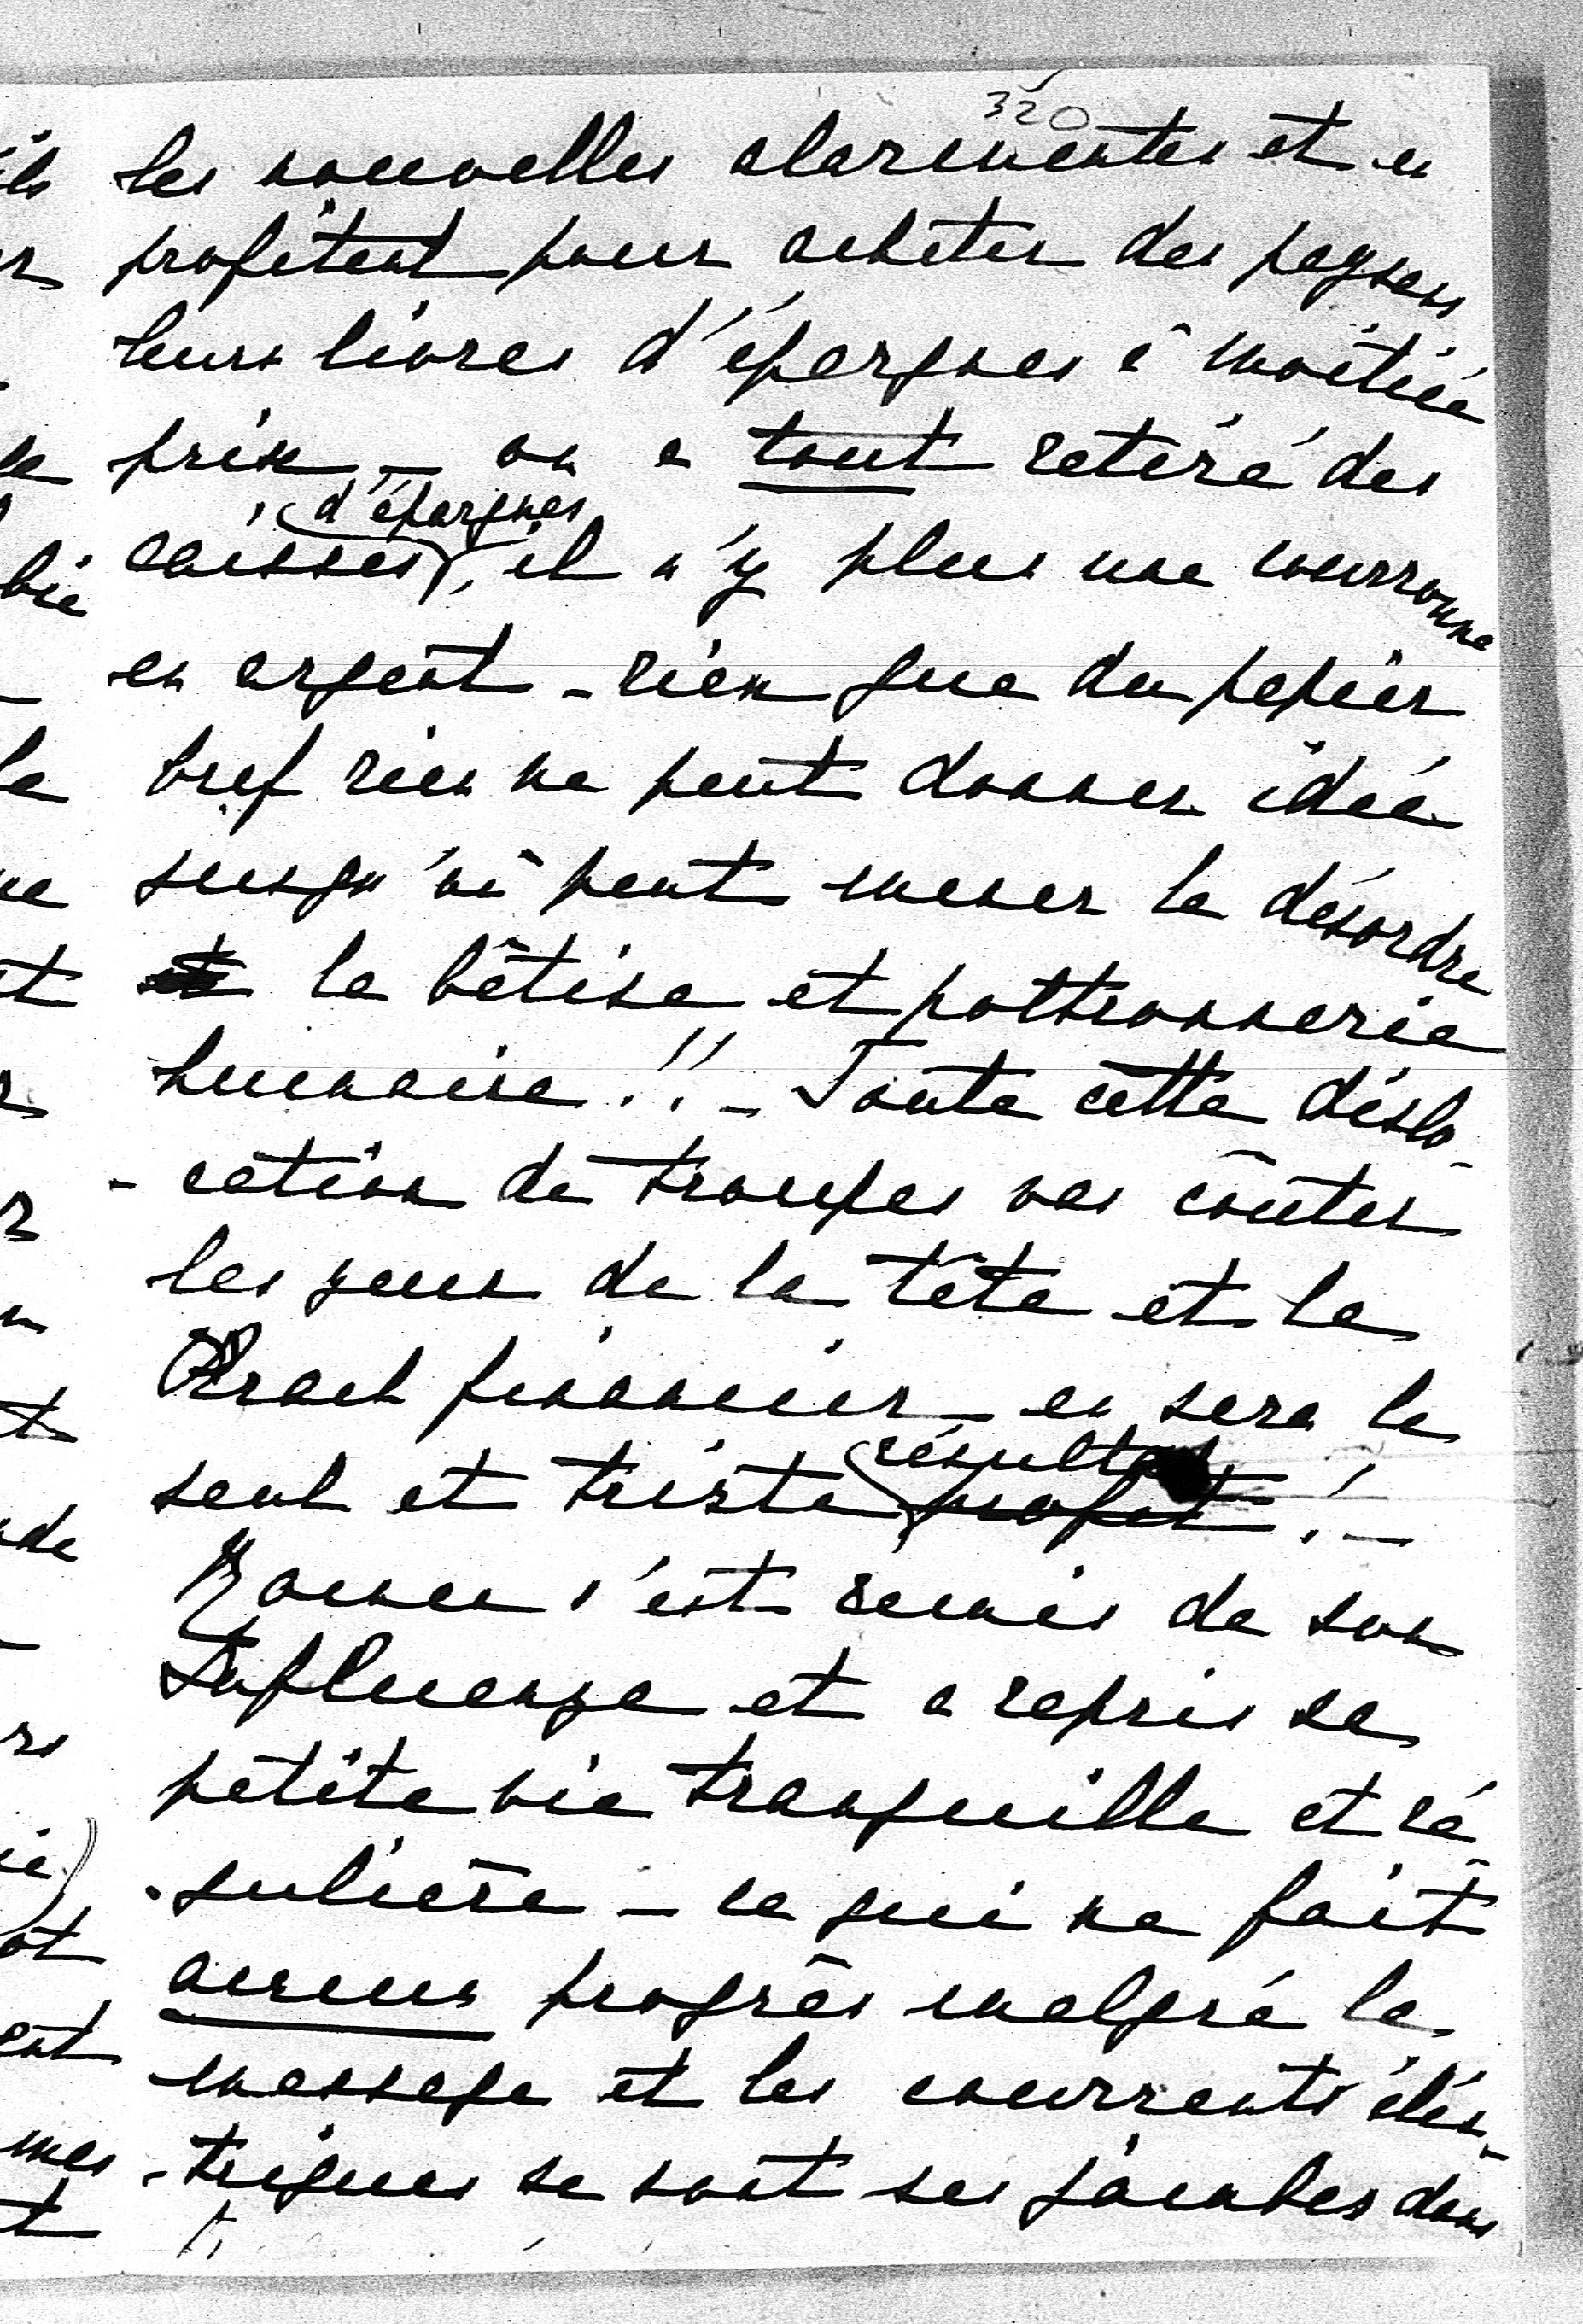 320
les nouvelles alarmentes et en
profitent pour acheter des paysans
leurs livres d'épargnes à moitiée
prix – on a tout retiré des
caisses d'épargnes, il n'y plus une courronne
en argent – rien que du papier
bref rien ne peut donner idée
jusqu'où peut mener le désordre
la bêtise et poltronnerie
humaine!! – Toute cette dislo-
-cation de troupes vas coûter
les yeux de la tête et le
Krach financier – en sera le
seul et triste résultat profit! –
s'est remis de son
Influenza et a repris sa
petite vie tranquille et ré-
-gulière – ce qui ne fait
aucun progrès malgré le
massage et les courrants éléc-
-triques se sont ses jambes dans